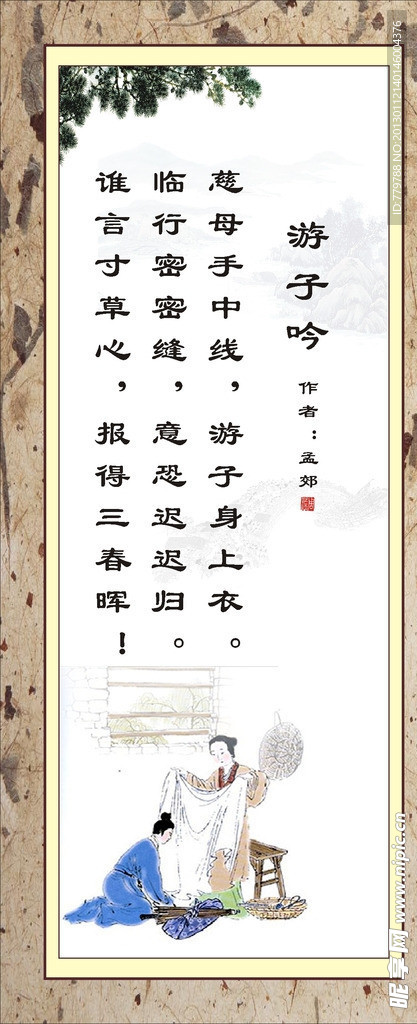 游子吟
作者：孟郊
慈母手中线，游子身上衣。
临行密密缝，意恐迟迟归。
谁言寸草心，报得三春晖！
ID:779788 NO:20130112140146004376
昵享网 www.nipic.cn